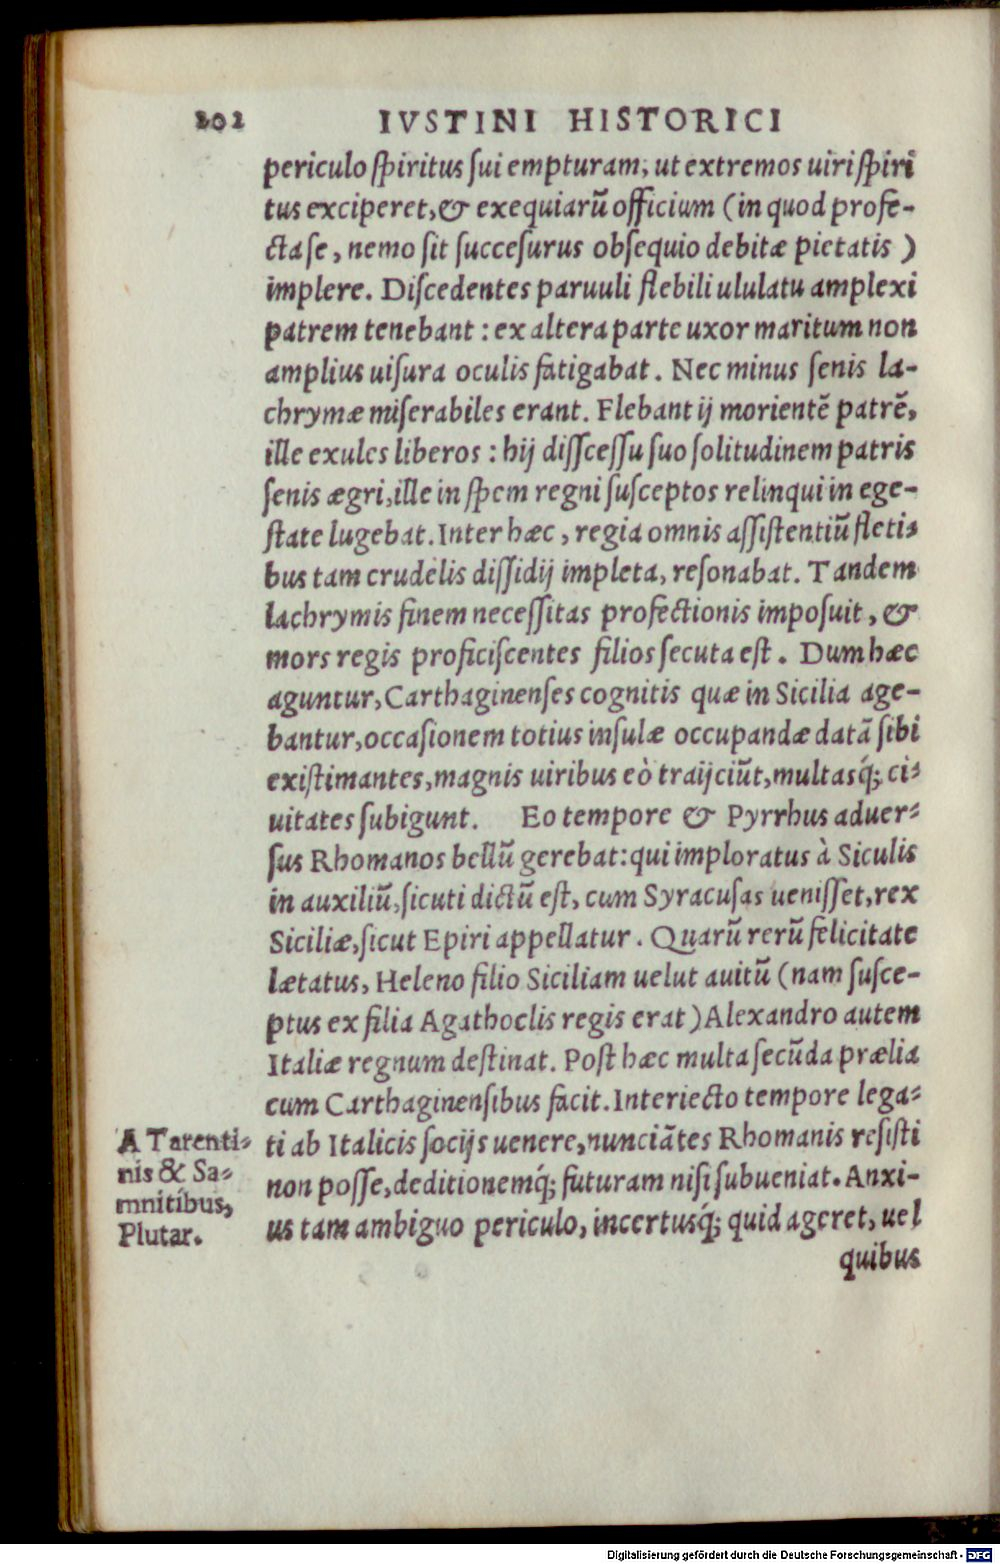 202 IVSTINI HISTORICI
periculo ſpiritus ſui empturam, ut extremos uiri ſpiri
tus exciperet, & exequiarũ officium (in quod profe-
cta ſe, nemo ſit ſucceſurus obſequio debitæ pietatis)
implere. Diſcedentes paruuli flebili ululatu amplexi
patrem tenebant: ex altera parte uxor maritum non
amplius uiſura oculis fatigabat. Nec minus ſenis la-
chrymæ miſerabiles erant. Flebant ij morientẽ patrẽ,
ille exules liberos: hij diſſceſſu ſuo ſolitudinem patris
ſenis ægri, ille in ſpem regni ſuſceptos relinqui in ege-
ſtate lugebat. Inter hæc, regia omnis aſſiſtentiũ fleti-
bus tam crudelis diſſidij impleta, reſonabat. Tandem
lachrymis finem neceſſitas profectionis impoſuit, &
mors regis proficiſcentes filios ſecuta eſt. Dum hæc
aguntur, Carthaginenſes cognitis quæ in Sicilia age-
bantur, occaſionem totius inſulæ occupandæ datã ſibi
exiſtimantes, magnis uiribus eò traijciũt, multasq́; ci-
uitates ſubigunt. Eo tempore & Pyrrhus aduer-
ſus Rhomanos bellũ gerebat: qui imploratus à Siculis
in auxiliũ, ſicuti dictũ eſt, cum Syracuſas ueniſſet, rex
Siciliæ, ſicut Epiri appellatur. Quarũ rerũ felicitate
lætatus, Heleno filio Siciliam uelut auitũ (nam ſuſce-
ptus ex filia Agathoclis regis erat) Alexandro autem
Italiæ regnum deſtinat. Poſt hæc multa ſecũda prælia
cum Carthaginenſibus facit. Interiecto tempore lega-
ti ab Italicis ſocijs uenere, nunciãtes Rhomanis reſiſti
non poſſe, deditionemq́; futuram niſi ſubueniat. Anxi-
us tam ambiguo periculo, incertusq́; quid ageret, uel
quibus
A Tarenti-
nis & Sa-
mnitibus,
Plutar.
Digitalisierung gefördert durch die Deutsche Forschungsgemeinschaft - DFG